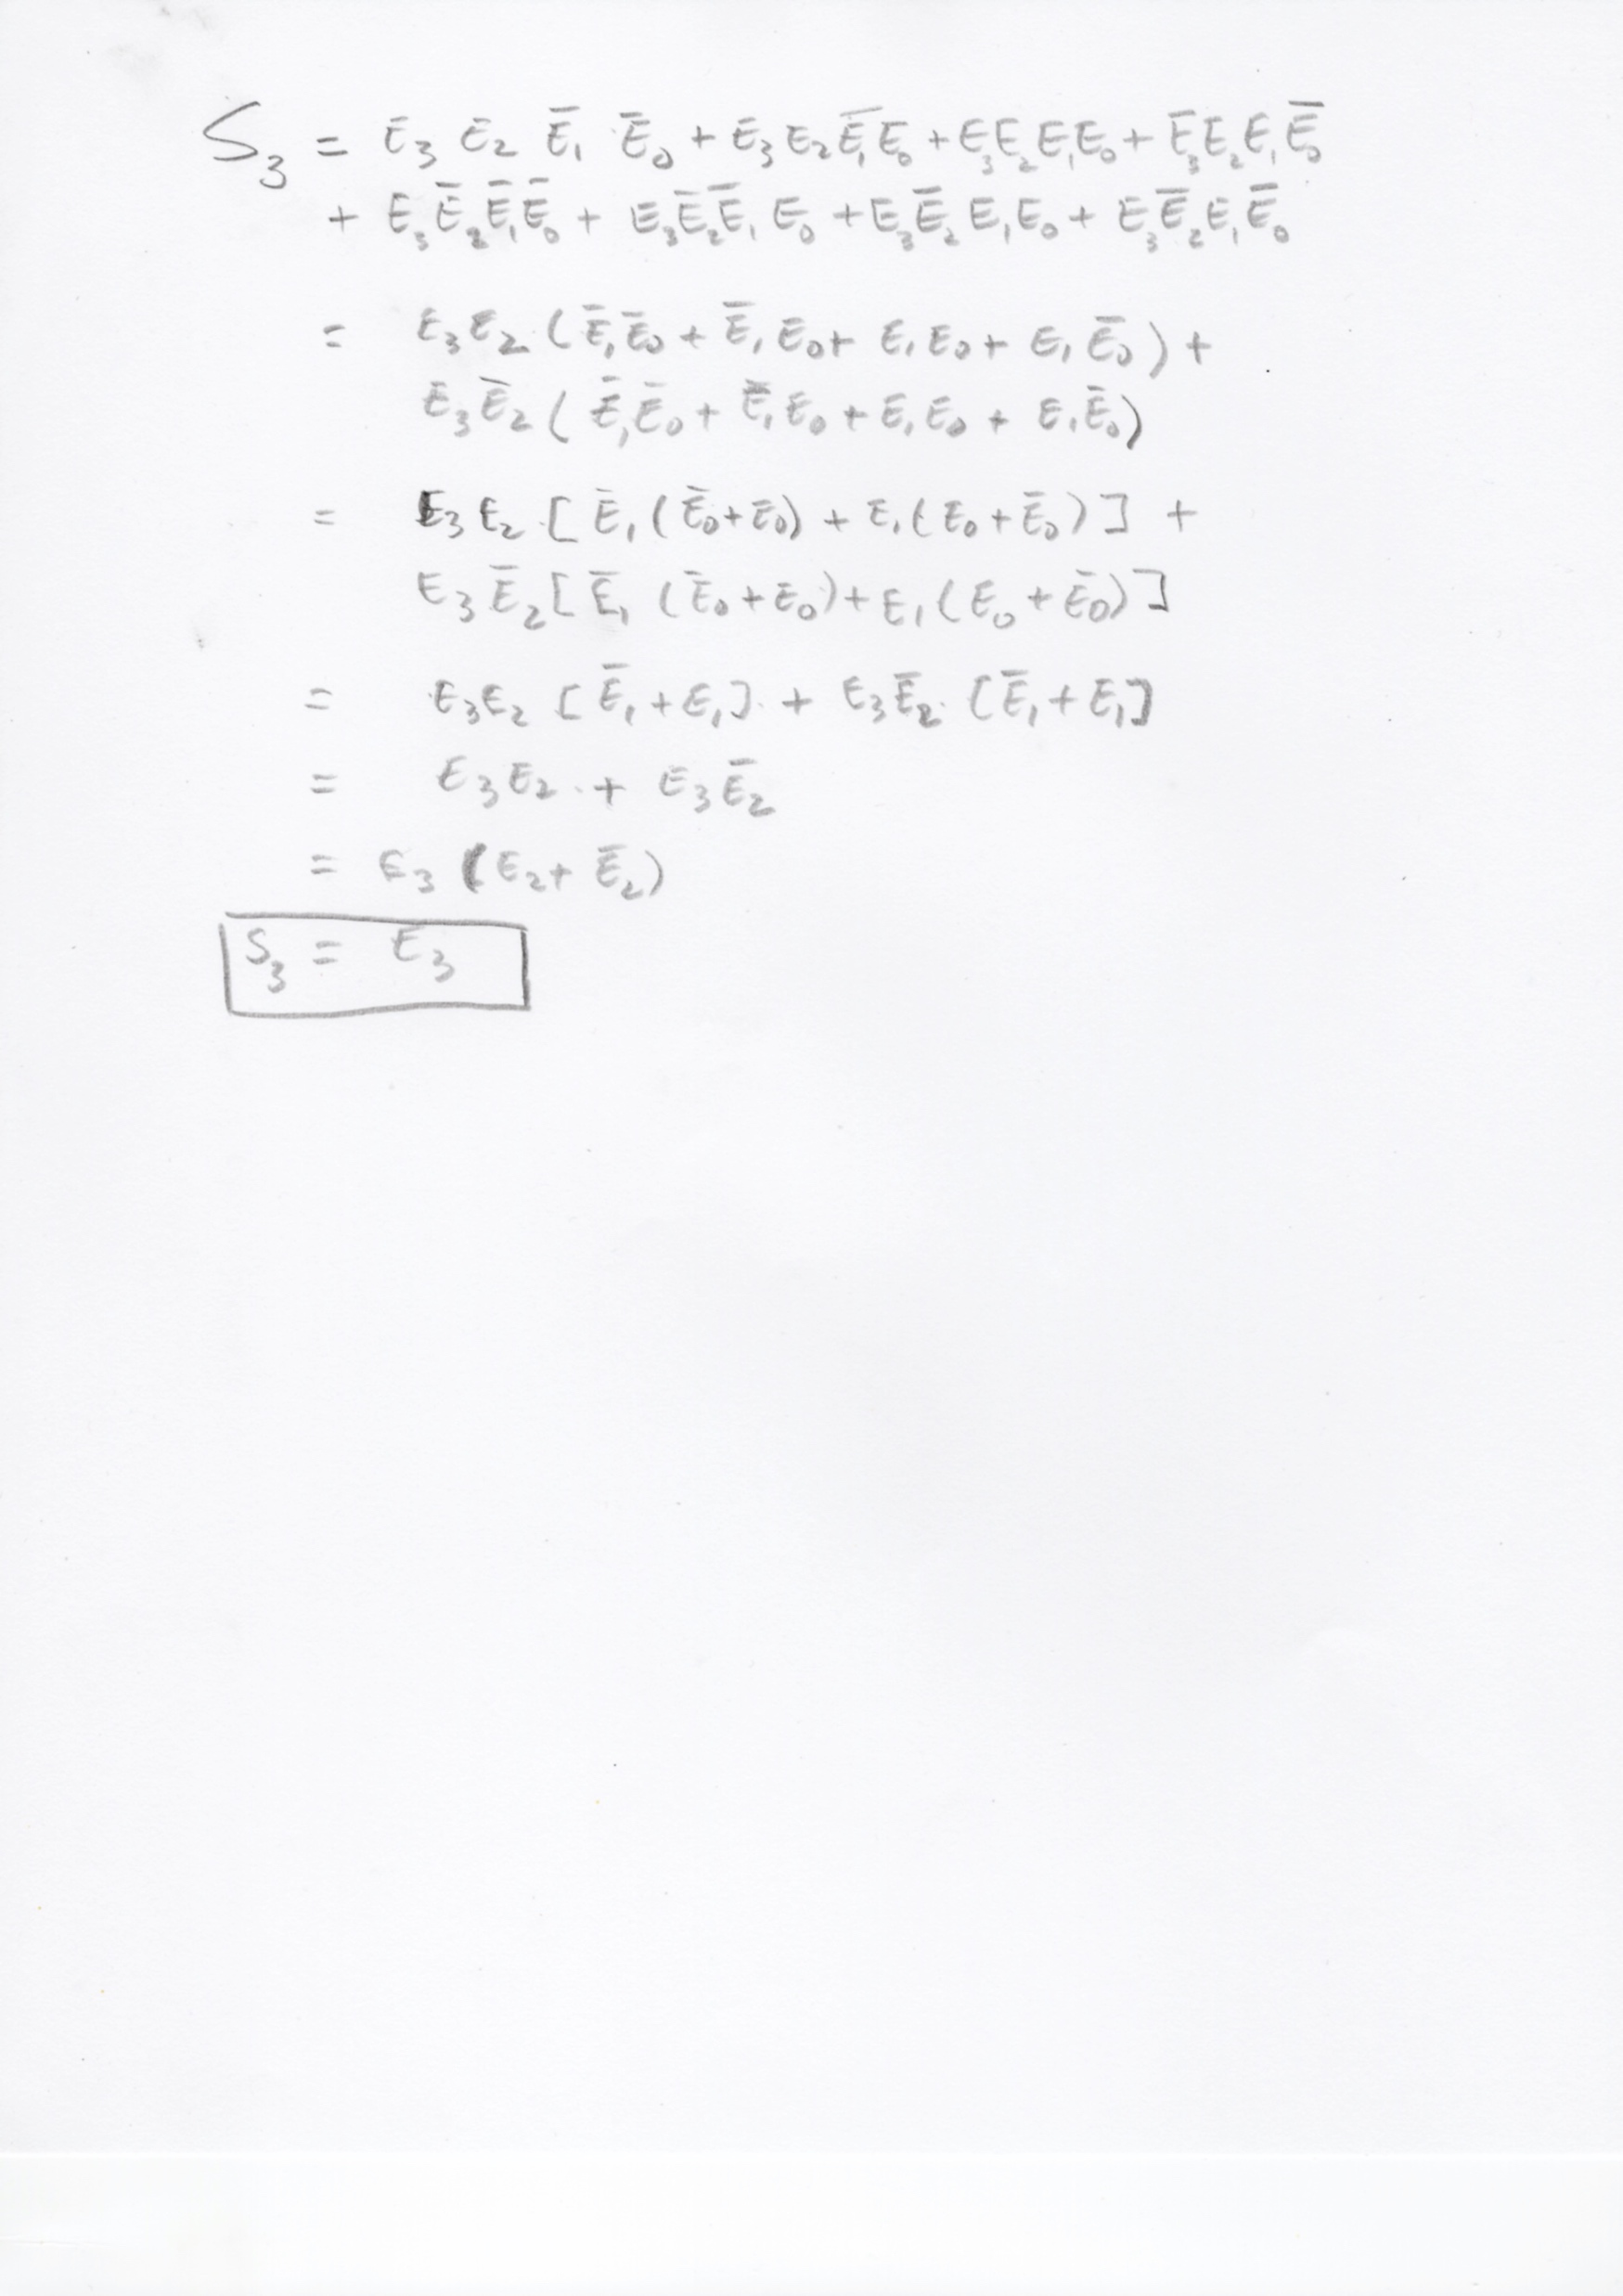 S₃ = E₃ E₂ Ē₁ Ē₀ + E₃ E₂ Ē₁ E₀ + E₃ E₂ E₁ E₀ + E₃ E₂ E₁ Ē₀
+ E₃ Ē₂ Ē₁ Ē₀ + E₃ Ē₂ Ē₁ E₀ + E₃ Ē₂ E₁ E₀ + E₃ Ē₂ E₁ Ē₀
= E₃ E₂ (Ē₁ Ē₀ + Ē₁ E₀ + E₁ E₀ + E₁ Ē₀) +
E₃ Ē₂ (Ē₁ Ē₀ + Ē₁ E₀ + E₁ E₀ + E₁ Ē₀)
= E₃ E₂ [Ē₁ (Ē₀ + E₀) + E₁ (E₀ + Ē₀)] +
E₃ Ē₂ [Ē₁ (Ē₀ + E₀) + E₁ (E₀ + Ē₀)]
= E₃ E₂ [Ē₁ + E₁] + E₃ Ē₂ [Ē₁ + E₁]
= E₃ E₂ + E₃ Ē₂
= E₃ (E₂ + Ē₂)
S₃ = E₃